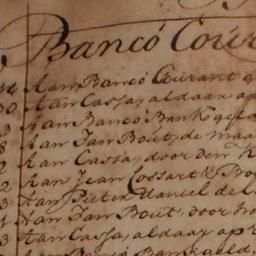 Bancó Cour
Aan Banco Courant g
Aan Cassa, aldaar op
Aan Banco Bank gela
Aan Jan Bout, de maa
Aan Cassa, door den K
Aan Jean Cossart & Bo
Aan Pieter Daniel de L
Aan Jan Bout, door ho
Aan Cassa, aldaar op r
Aan Banco Bank geld,